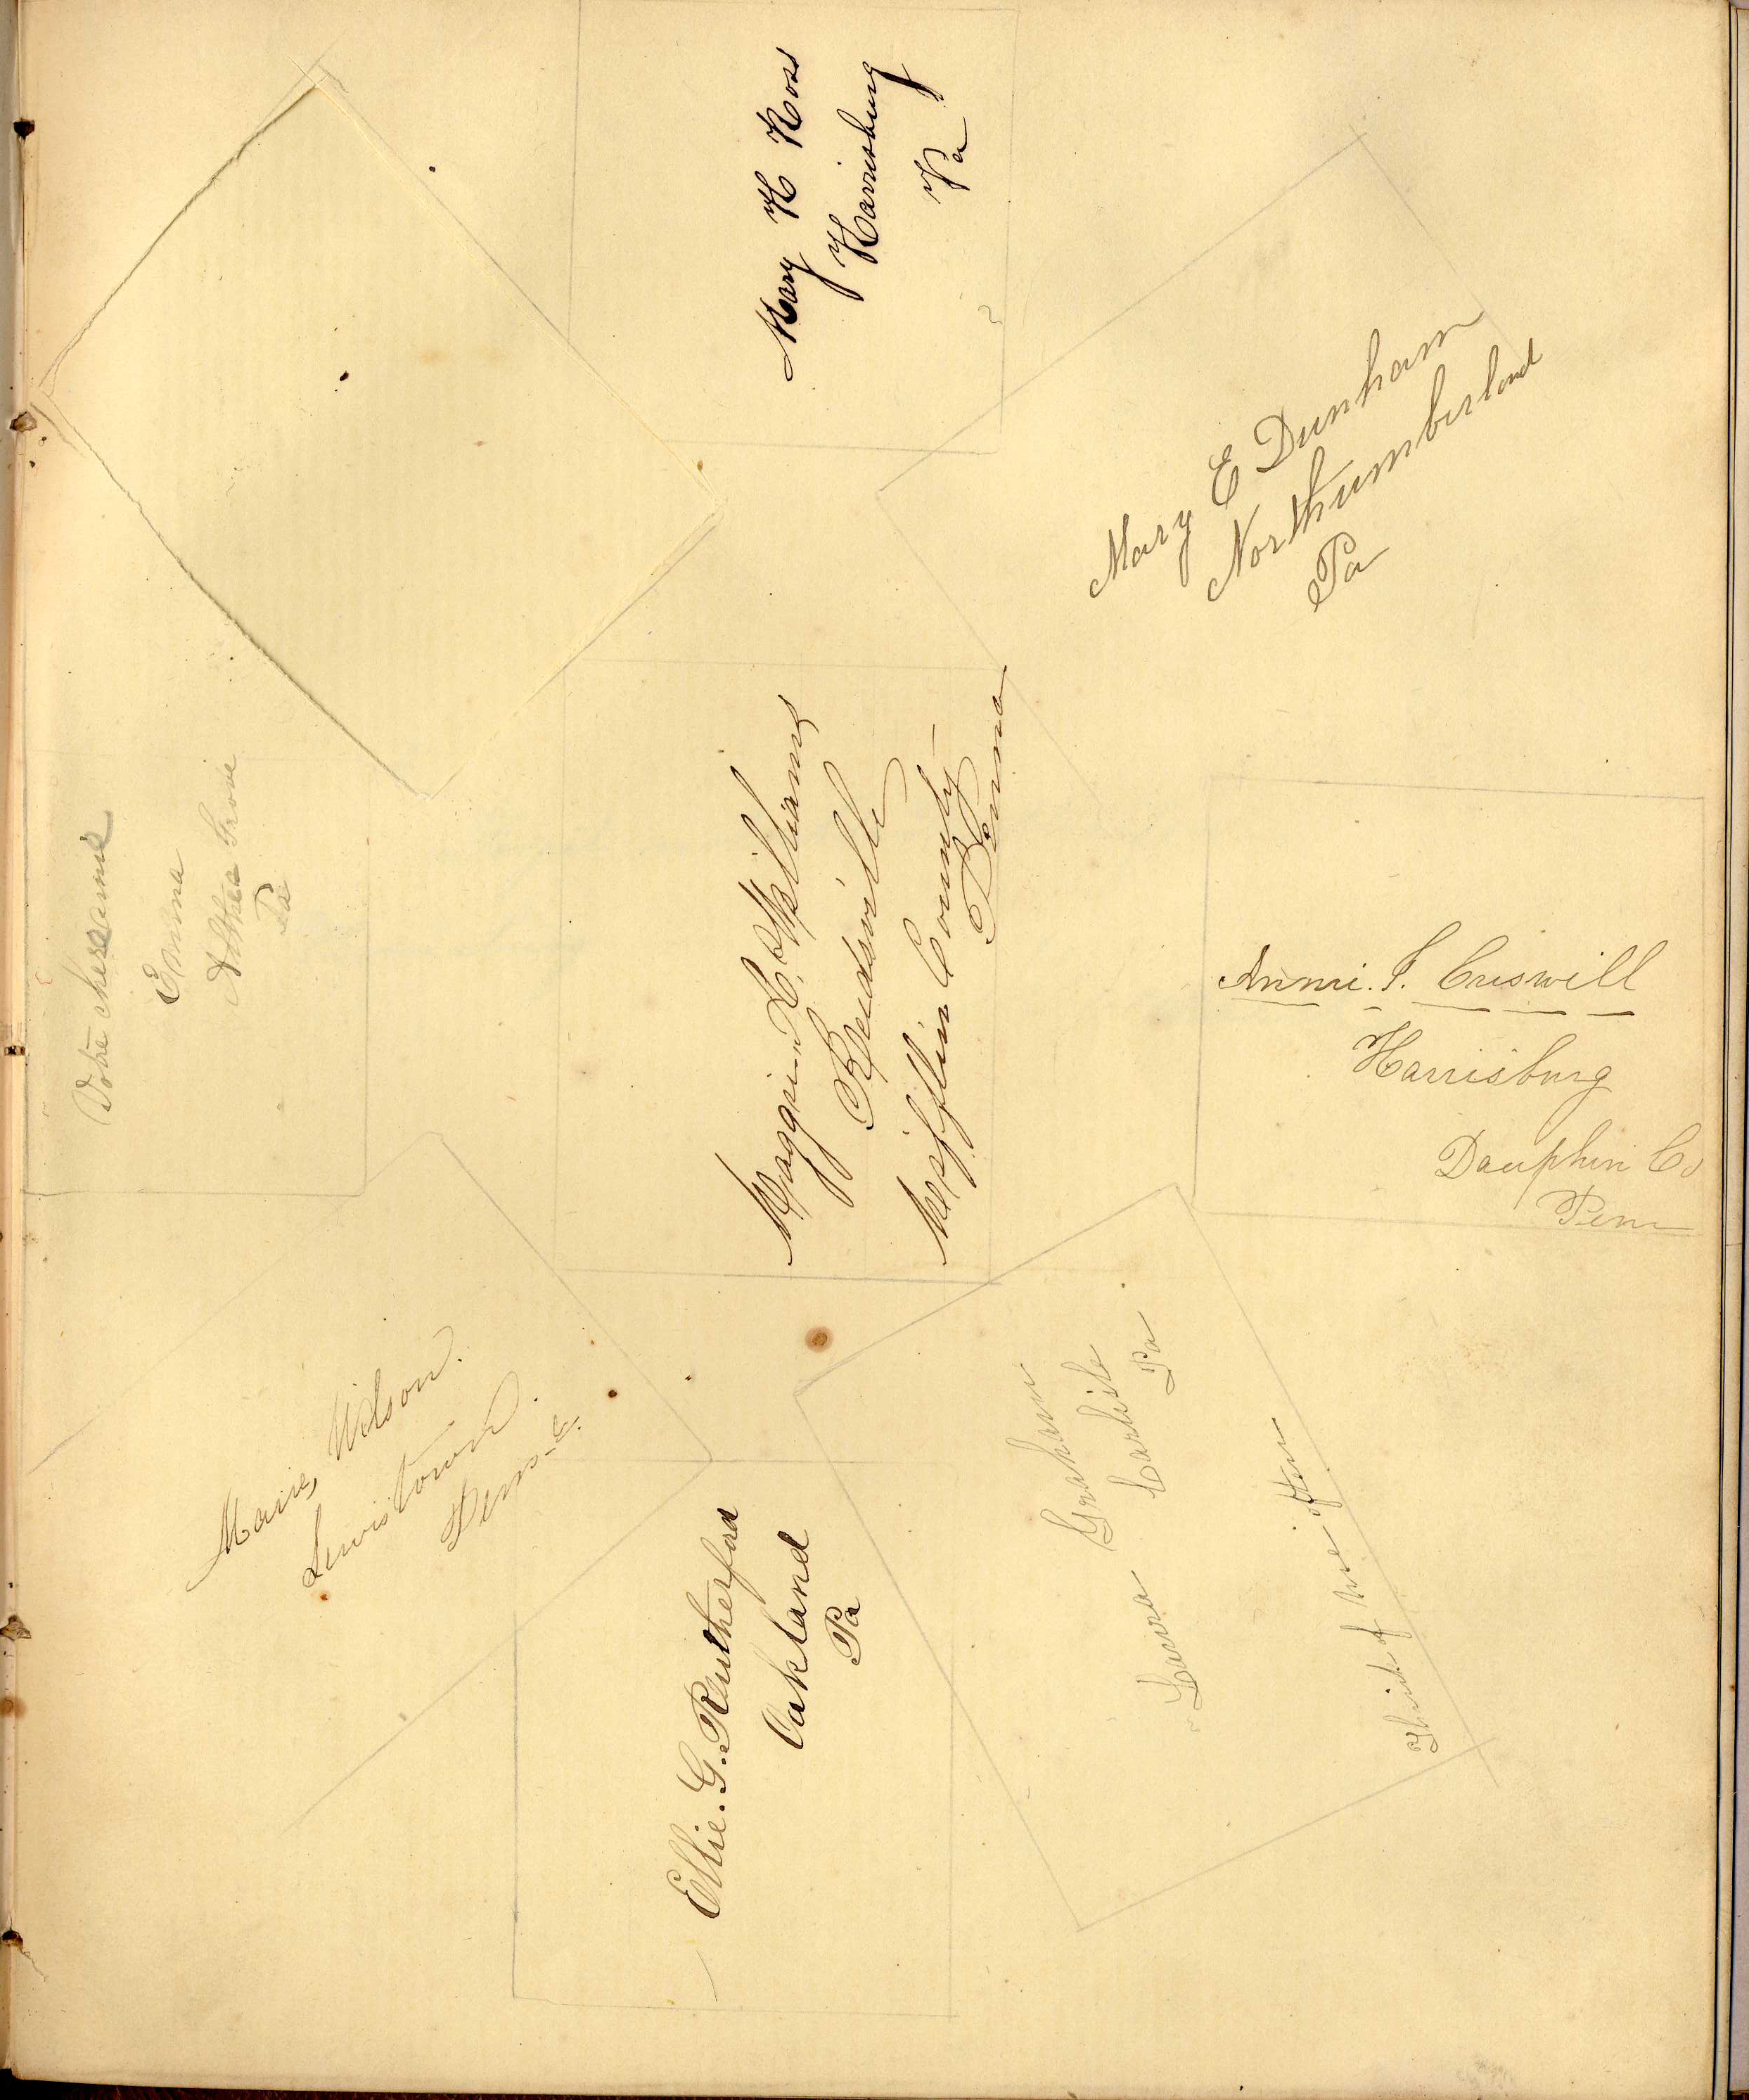 Mary H Ross
Harrisburg
Pa
Mary E Dunham
Northumberland
Pa
Votre chere amie
Emma
Pa
Maggie H. Williams
Reedsville
Mifflin County
Penna
Annie. F. Criswell
Harrisburg
Dauphin Co
Penn
Wilson.
Lewistown.
Penn-a.
Ellie. G. Rutherford
Oakland
Pa
Laura Graham
Carlisle
Pa
Think of me often